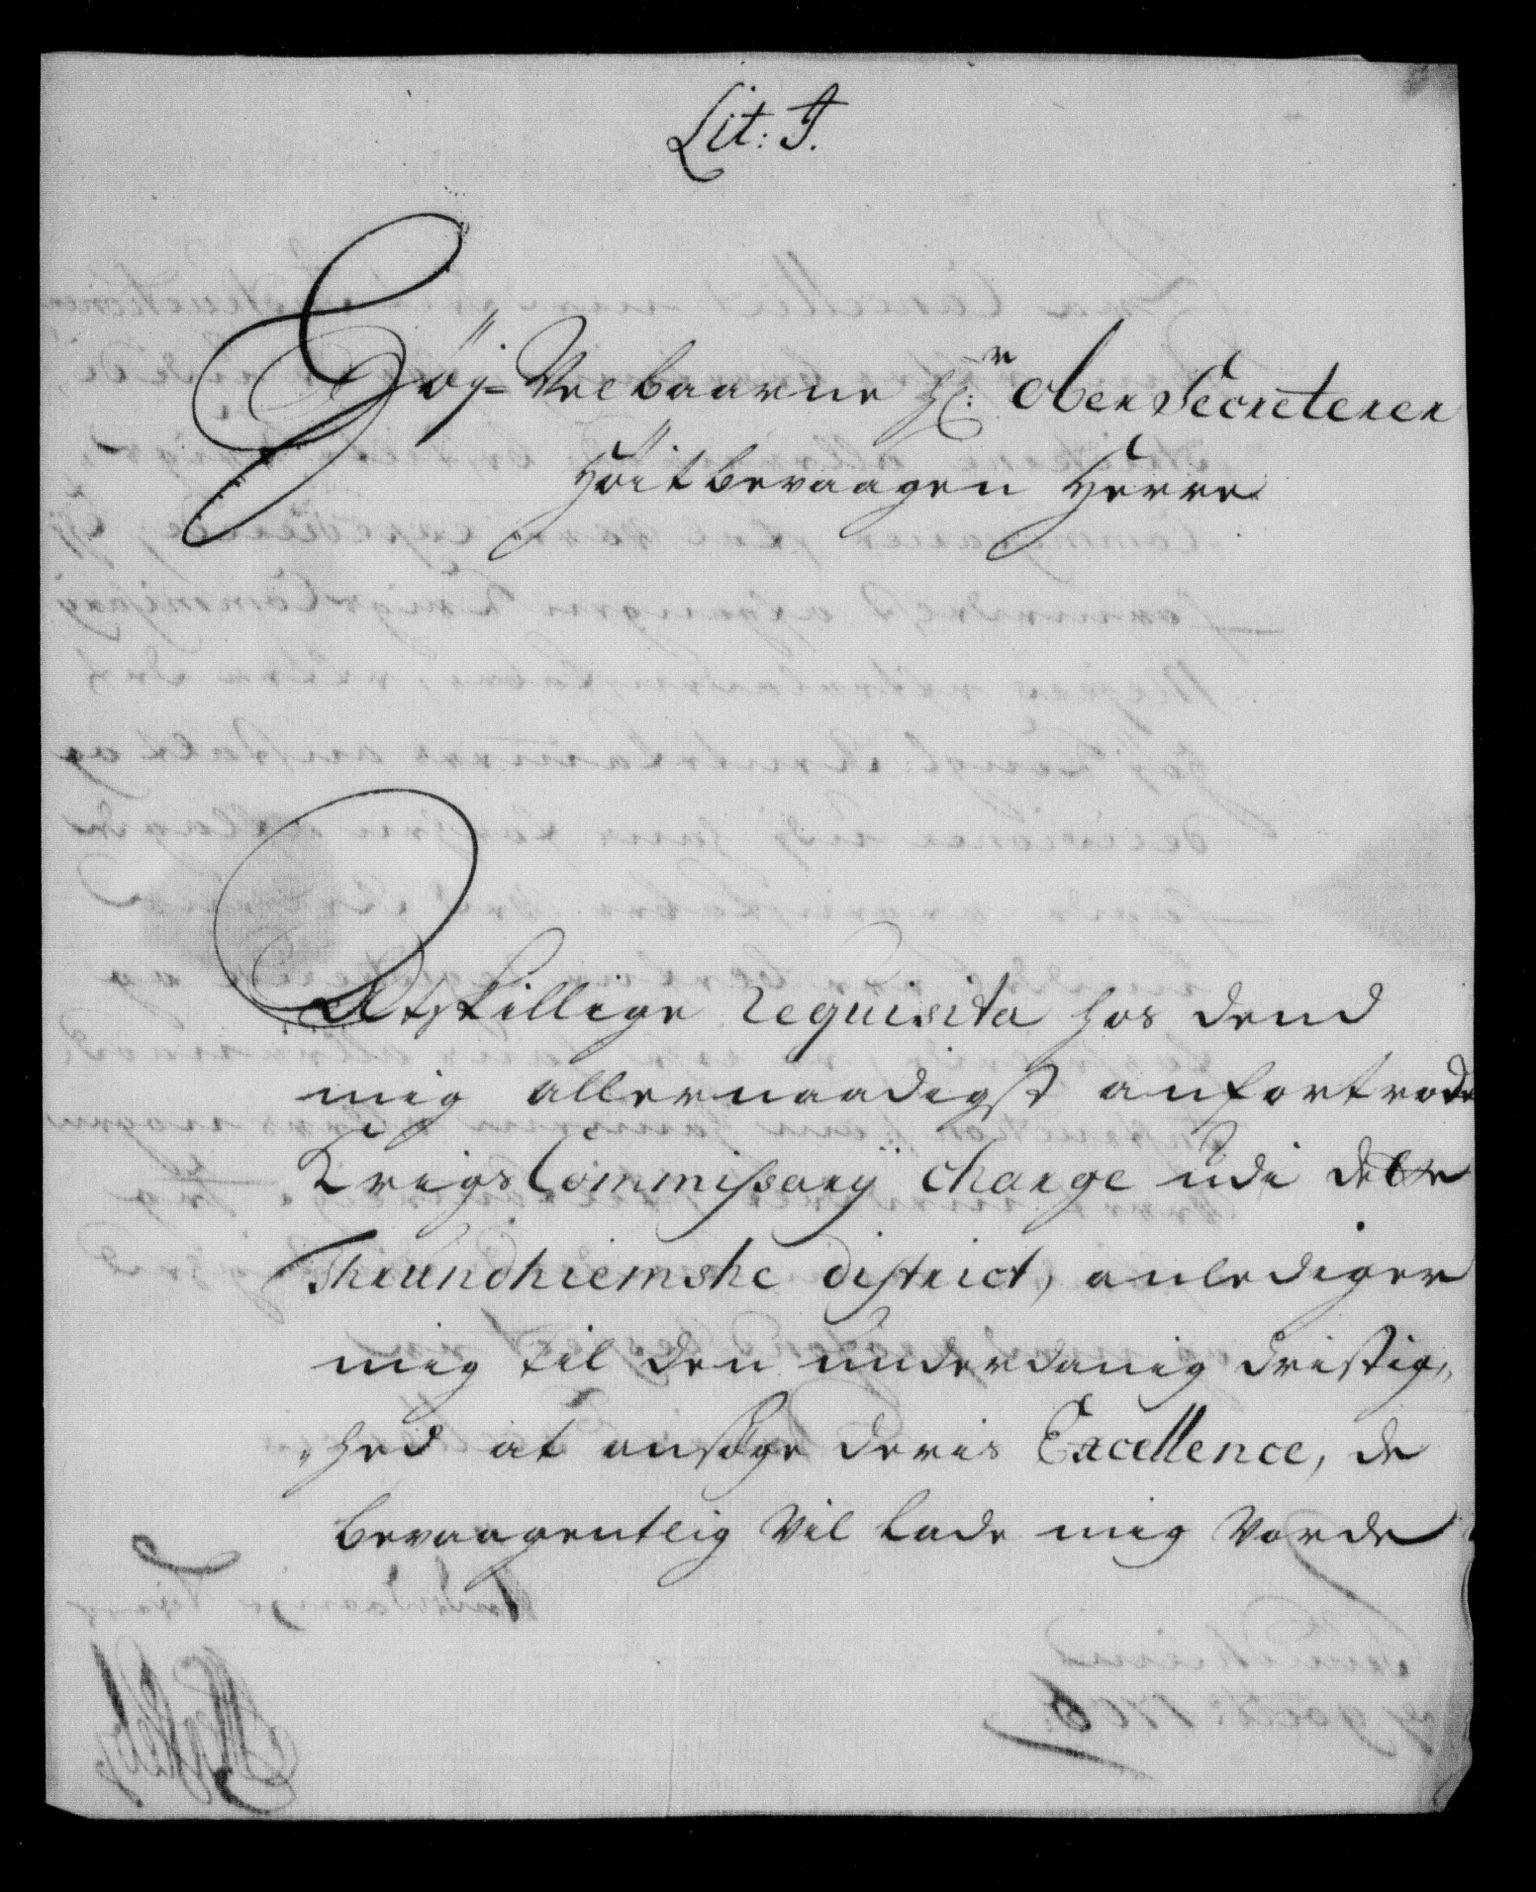 Lit: J.
Höÿ-Velbaarne Hr: Ober Secreterer
Höitbevaagen Herre
Atskillige requisita hos dend
mig allernaadigst anfortrode
Krigs Commissarÿ charge udi dette
Thrundhiemske district, anlediger
mig til den underdanig dristig,,
,,hed at ansöge deris Excellence, de
bevaagentlig vil lade mig vorde